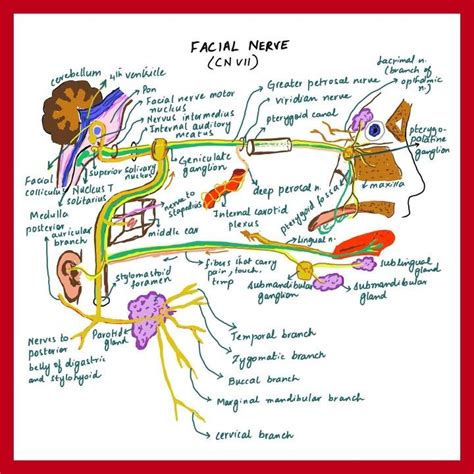 FACIAL NERVE
(CN VII)
cerebellum
4th ventricle
Pon
Facial nerve motor
nucleus
Nervus intermedius
Internal auditory
meatus
superior salivary
nucleus
Facial
colliculus
Nucleus T
solitarius
Medulla
Geniculate
ganglion
Greater petrosal nerve
viridian nerve
pterygoid canal
lacrimal n.
(branch of
opthalmic
n.)
pterygo-
palatine
ganglion
maxilla
deep perosal n.
Internal carotid
plexus
pterygoid fossa
lingual n.
nerve to
stapedius
middle ear
posterior
auricular
branch
stylomastoid
foramen
fibers that carry
pain, touch,
temp
Submandibular
ganglion
sublingual
gland
Submandibular
gland
Nerves to
posterior
belly of digastric
and stylohyoid
Parotid
gland
Temporal branch
Zygomatic branch
Buccal branch
Marginal mandibular branch
cervical branch